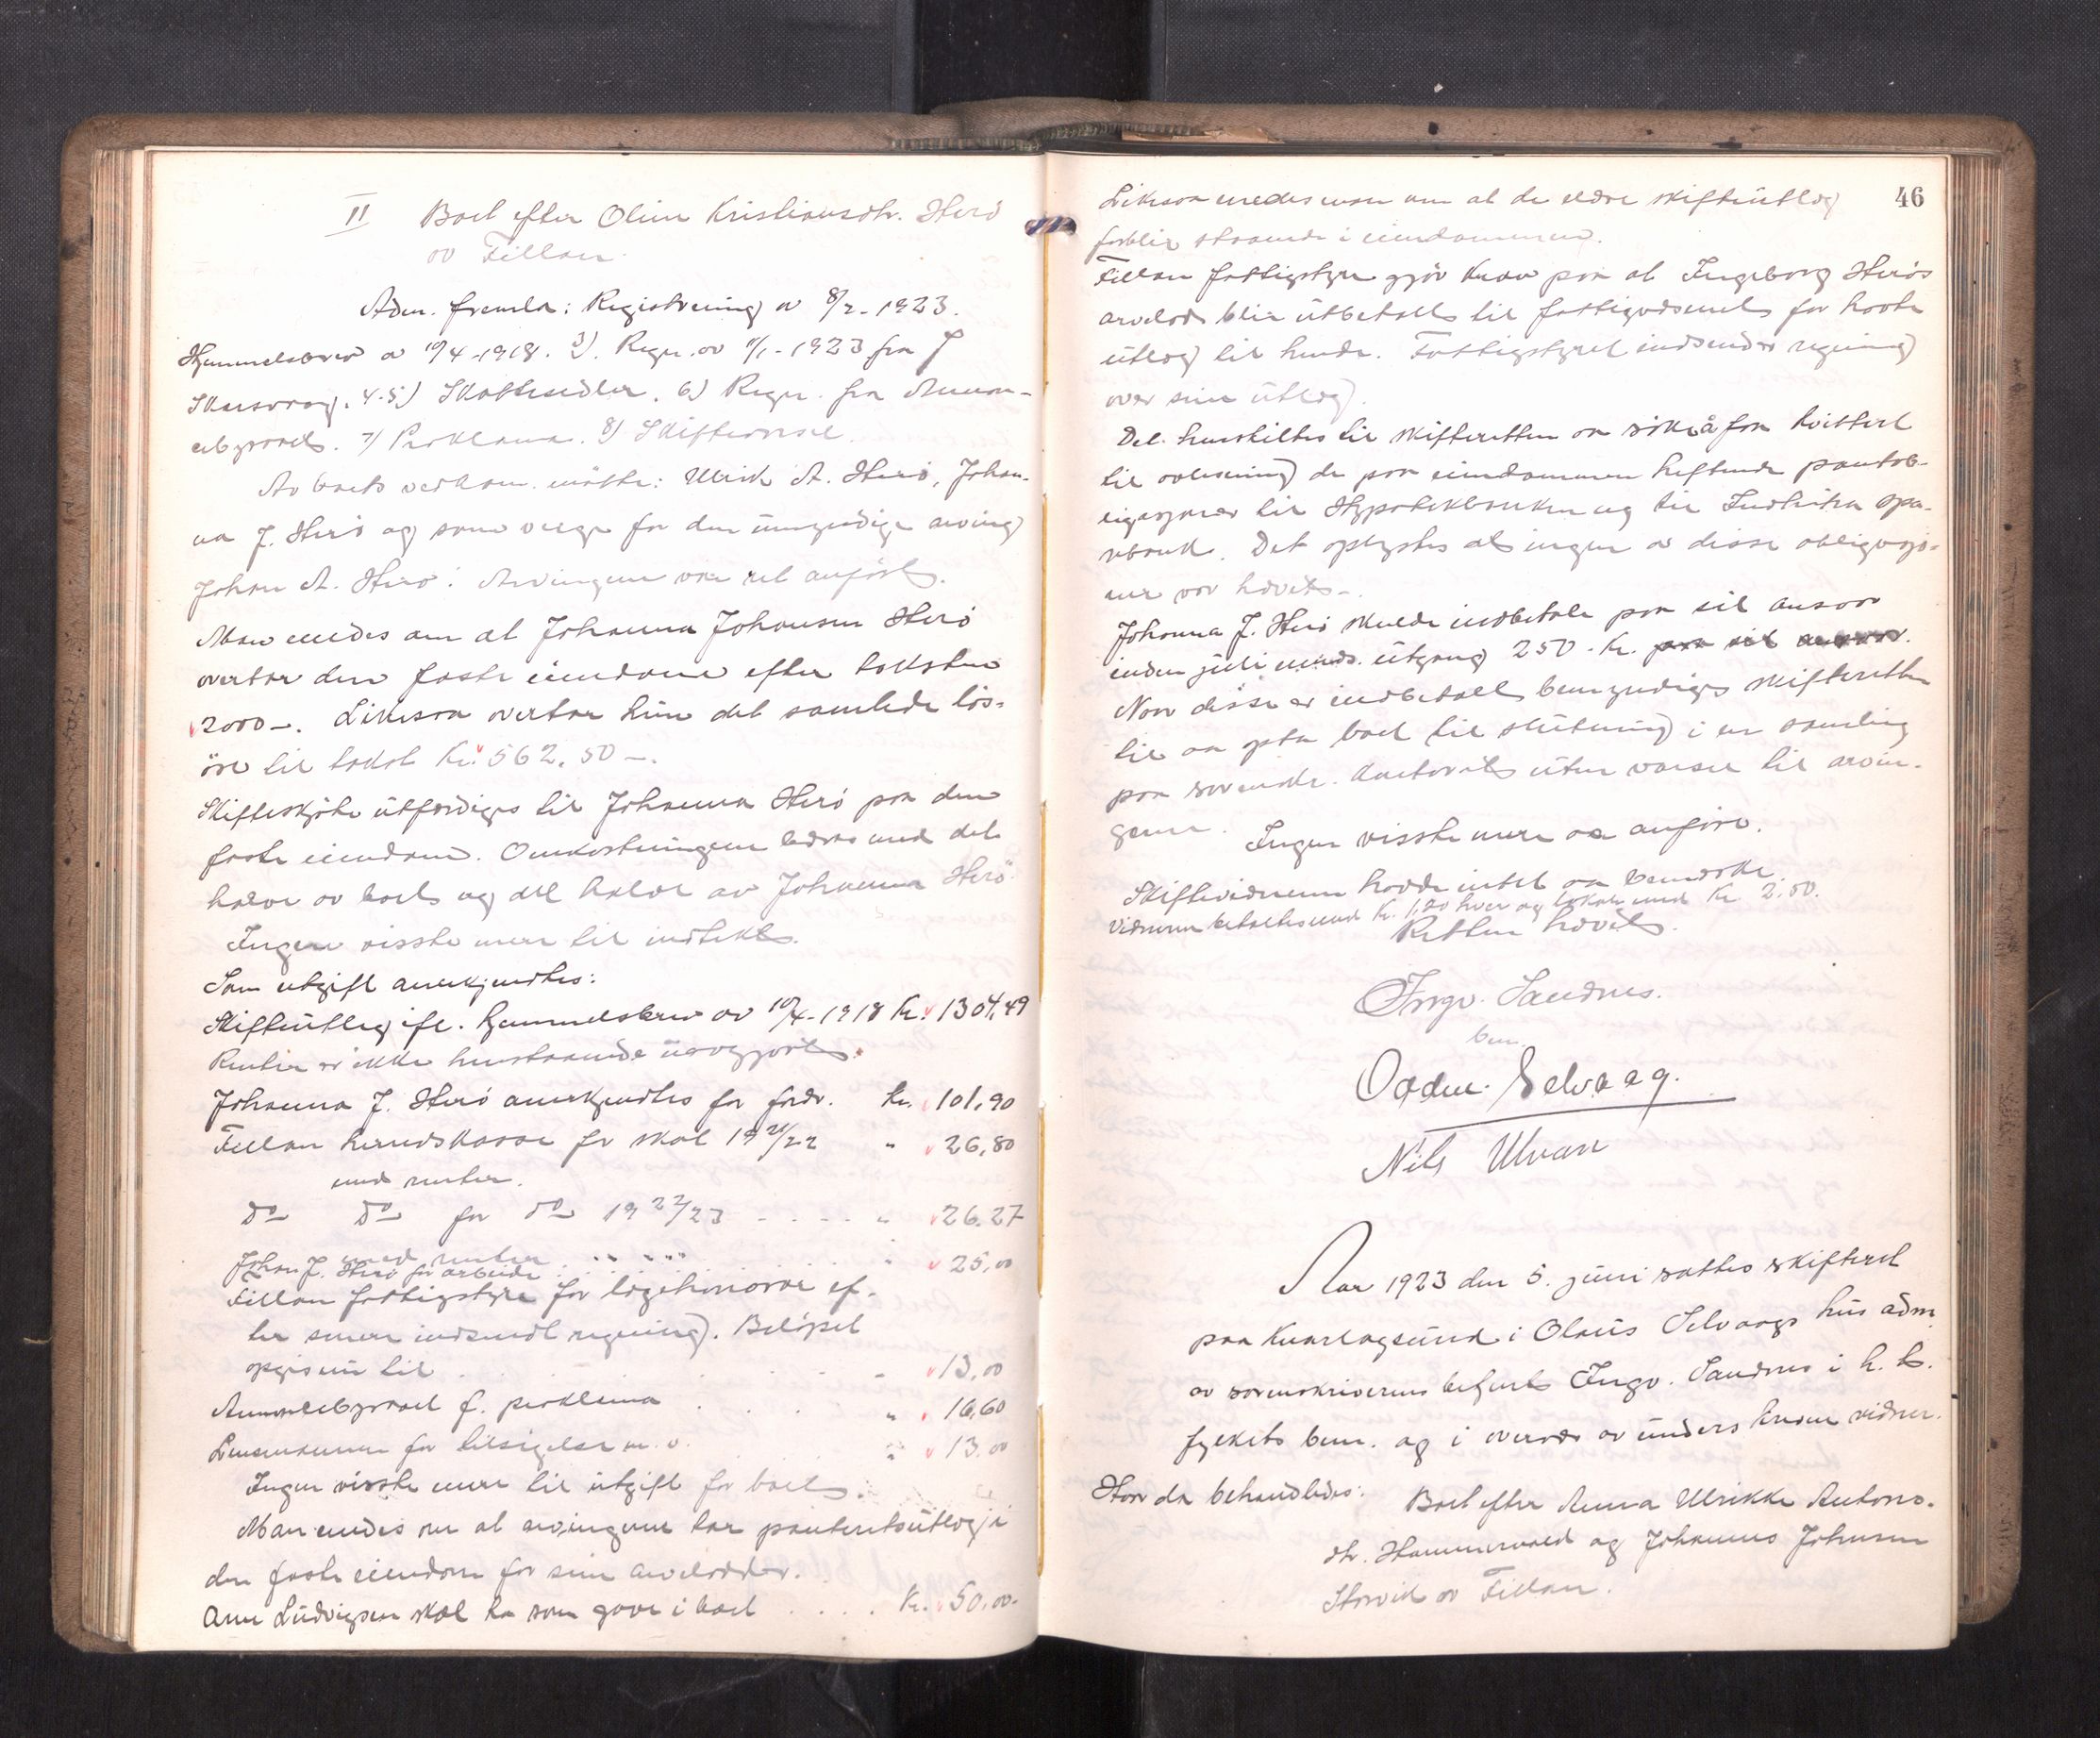 II Boet efter Oline Kristiansdtr. Herö
av Fillan.
Adm. fremla: Registrering av 8/2-1923.
Hjemmelsbrev av 10/4-1918. 3). Regn. av 11/1-1923 fra J
Skarsvaag. 4-5) Skattesedler. 6) Regn. fra Annon-
cebyraaet. 7) Proklama. 8) Skiftevarsel.
Av boets vedkom. mötte: Ulrik A. Herö, Johan-
na J. Herö og som verge for den umyndige arving
Johan A. Herö. Arvingene var ret anfört.
Man enedes om at Johanna Johansen Herö
overtar den faste eiendom efter taksten
2000-. Likesaa overtar hun det samlede lös-
öre til takst Kr. 562.50-.
Skifteskjöte utfærdiges til Johanna Herö paa den
faste eiendom. Omkostningene bæres med det
halve av boet og det halve av Johanna Herö.
Ingen visste mere til indtekt.
Som utgift anerkjendtes:
Skifteutlæg ifl. hjemmelsbrev av 10/4-1918 Kr. 1304,49
Renter er ikke henstaaende uavgjort.
Johanna J. Herö anerkjendtes for fordr. Kr. 101,90
Fillan herredskasse for skat 1921/22 " 26,80
med renter.
do do for do 1922/23 - - - - " 26.27
med renter
Johan J. Herö for arbeide . . . . . " 25,00
Fillan fattigstyre for lægehonorar ef-
ter senere indsendt regning. Belöpet
opgives til . . . . . " 13,00
Annoncebyraaet f. proklama . . . " 16,60
Lensmannen for tilsigelser m.v. " 13.00
Ingen visste mere til utgift for boet.
Man enedes om at arvingene har panteretsutlæg i
den faste eiendom for sine arvelodder.
Arne Ludvigsen skal ha som gave i boet . . . . Kr. 50,00-
46
Likesaa enedes man om at de eldre skifteutlæg
forblir staaende i eiendommen.
Fillan fattigstyre gjör krav paa at Ingeborg Herös
arvelod blir utbetalt til fattigvæsenet for havte
utlæg til hende. Fattigstyret indsender regning
over sine utlæg.
Det henstilles til skifteretten aa söke å faa kvittert
til avlesning de paa eiendommen heftende pantob-
ligasjoner til Hypotekbanken og til Indhitra spa-
rebank. Det oplystes at ingen av disse obligasjo-
ner var hævet-.
Johanna J. Herö skulde indbetale paa sit ansvar
inden juli mnds. utgang 250.- Kr.
Naar disse er indbetalt bemyndiges skifteretten
til aa opta boet til slutning i en samling
paa sorenskr. kontoret uten varsel til arvin-
gene.
Ingen visste mere aa anföre.
Skiftevidnene hadde intet aa bemerke.
Vidnene betaltes med Kr. 1,20 hver og lokale med Kr 2.50.
Retten hævet.
Ingv. Sandnes.
bem.
Oddm. Selvaag.
Nils Ulvan
Aar 1923 den 5. juni sattes skifteret
paa Kvarlagsund i Olaus Selvaags hus adm.
av sorenskriverens befuld. Ingv. Sandnes i h. t.
fylkets bem. og i overvær av unders krevne vidner.
Hvor da behandledes: Boet efter Anna Ulrikke Antons-
dtr. Hammervold og Johannes Johnsen
Storvik av Fillan.